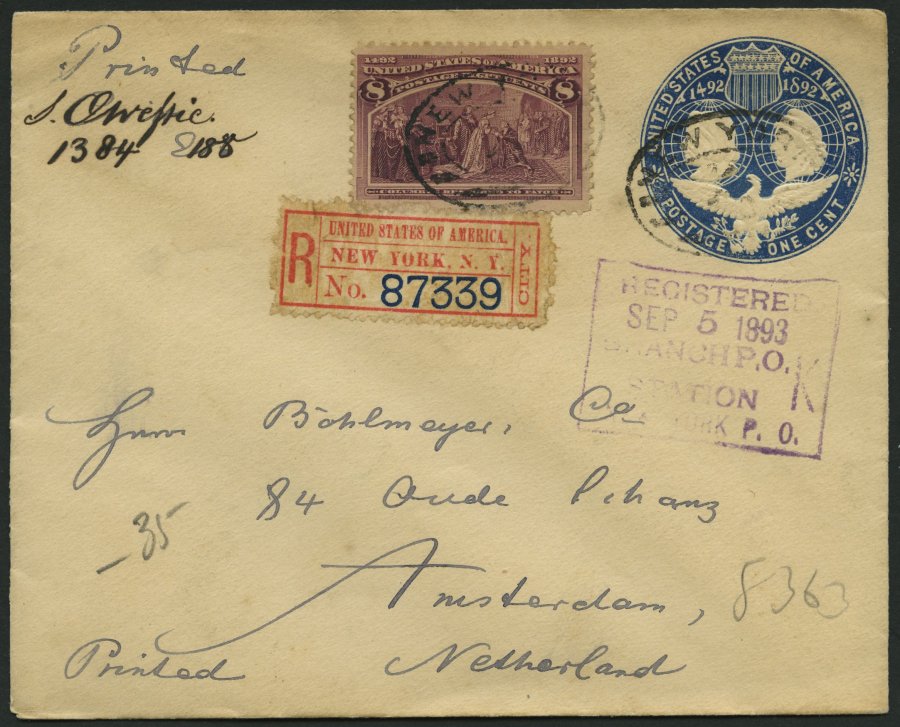 Printed
1384 2188
1492 1892
UNITED STATES OF AMERICA
POSTAGE EIGHT CENTS
8 8
NEW Y
UNITED STATES OF AMERICA
1492 1892
POSTAGE ONE CENT
N Y
R
UNITED STATES OF AMERICA.
NEW YORK, N. Y.
No. 87339
REGISTERED
SEP 5 1893
BRANCH P.O.
STATION K
YORK P. O.
Herrn Böhlmeyer, Co
84 Oude Schanz
35
Amsterdam,
8363
Printed Netherland